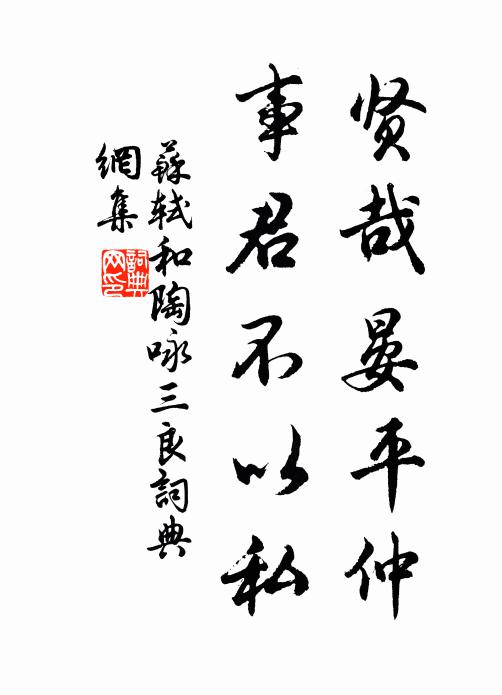 贤哉晏平仲
事君不以私
蘇軾和陶咏三良詞典
網集
詞典
网印